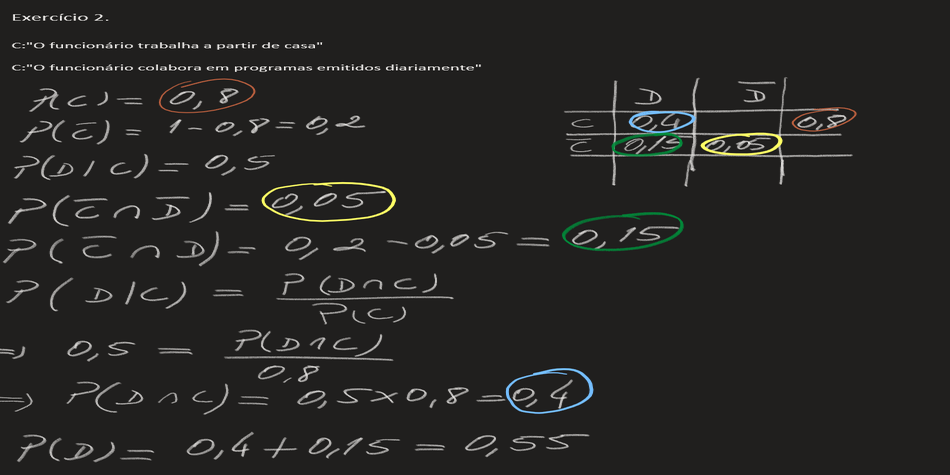 Exercício 2.
C:"O funcionário trabalha a partir de casa"
C:"O funcionário colabora em programas emitidos diariamente"
P(C) = 0,8
P(C̅) = 1 - 0,8 = 0,2
P(D|C) = 0,5
P(C̅ ∩ D̅) = 0,05
P(C̅ ∩ D) = 0,2 - 0,05 = 0,15
P(D|C) = P(D∩C) / P(C)
=> 0,5 = P(D∩C) / 0,8
=> P(D∩C) = 0,5 × 0,8 = 0,4
P(D) = 0,4 + 0,15 = 0,55
D D̅
C 0,4 0,8
C̅ 0,15 0,05